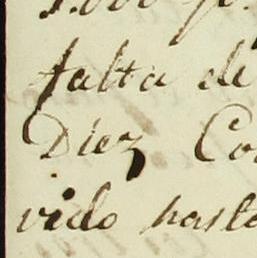 falta de
Diez Co
vido hasta